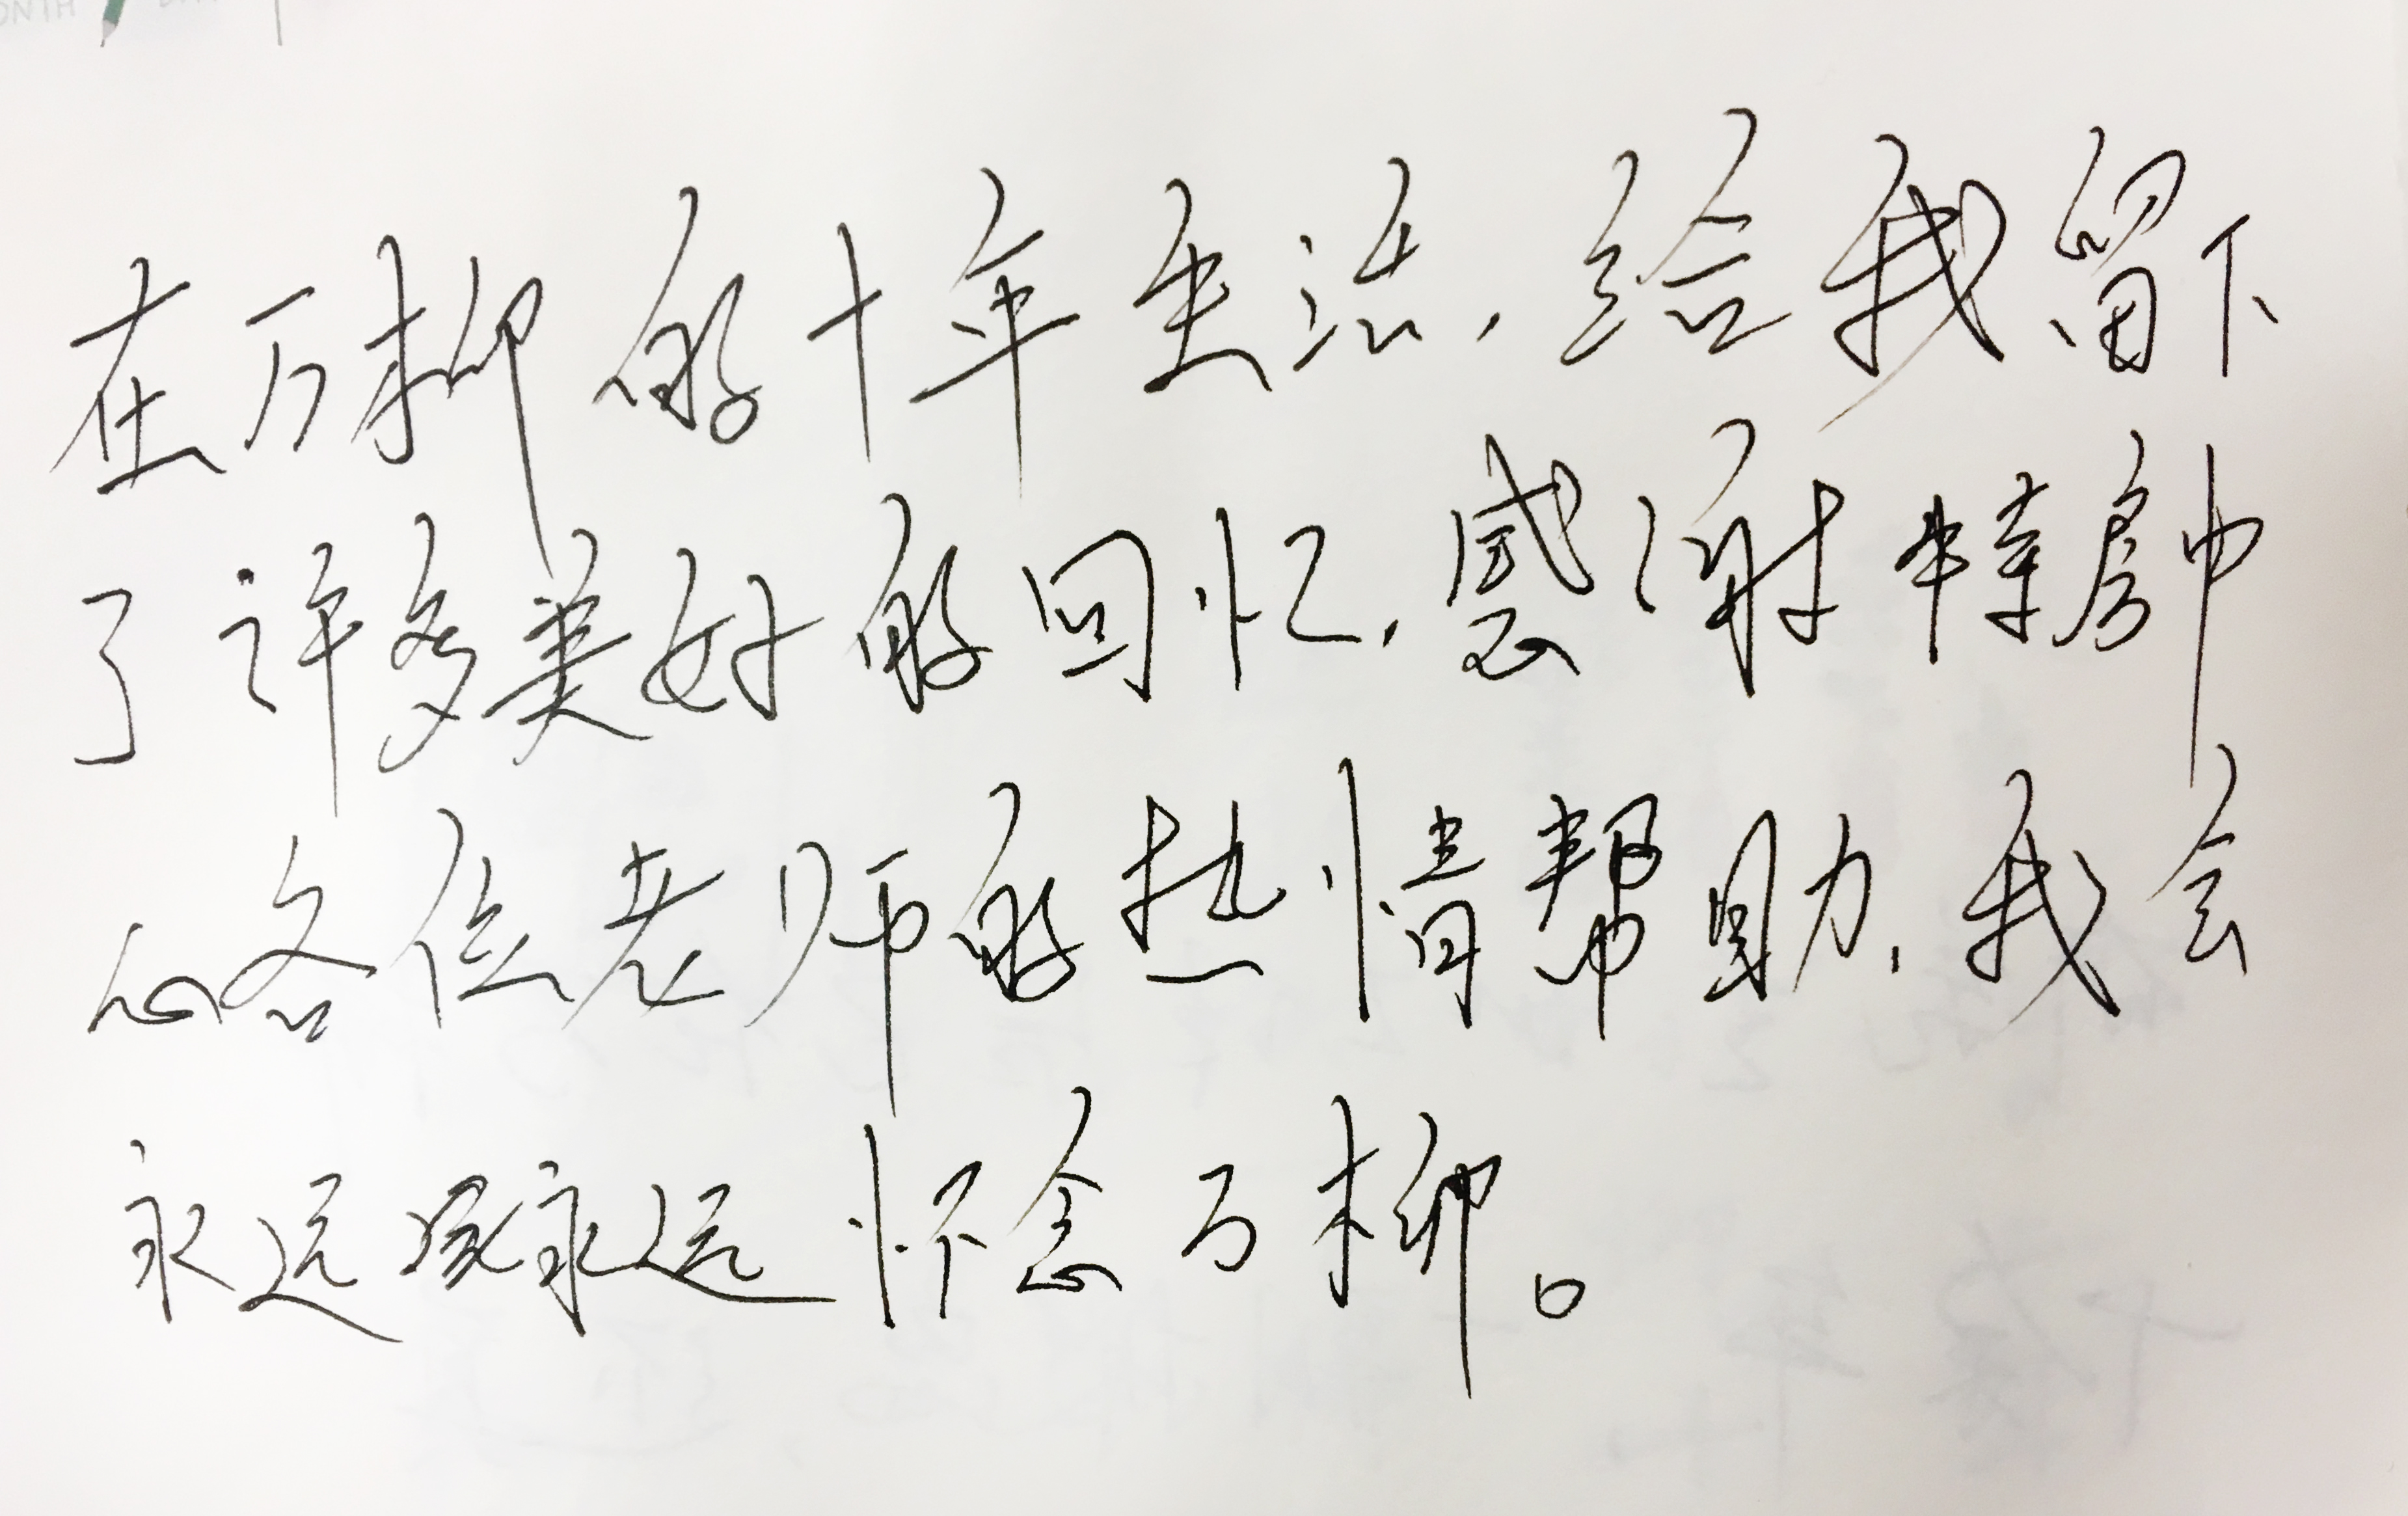 ONTH
在万柳的十年生活，给我留下
了许多美好的回忆，感谢特房中
心各位老师的热情帮助，我会
永远永远怀念万柳。